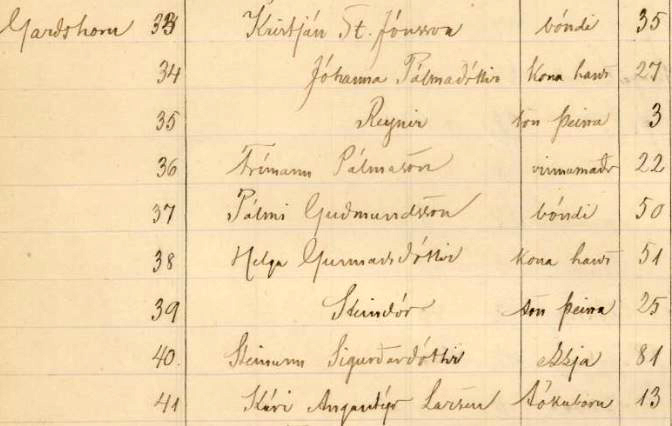 Garðshorn 33 Kristján St. Jónsson bóndi 35
34 Jóhanna Pálmadóttir Kona hans 27
35 Reynir son þeirra 3
36 Frímann Pálmason vinnumaðr 22
37 Pálmi Guðmundsson bóndi 50
38 Helga Gunnarsdóttir Kona hans 51
39 Steindór son þeirra 25
40 Steinunn Sigurðardóttir ekkja 81
41 Kári Angantýr Larsen tökubarn 13